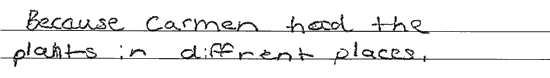 Because Carmen had the
plants in diffrent places,